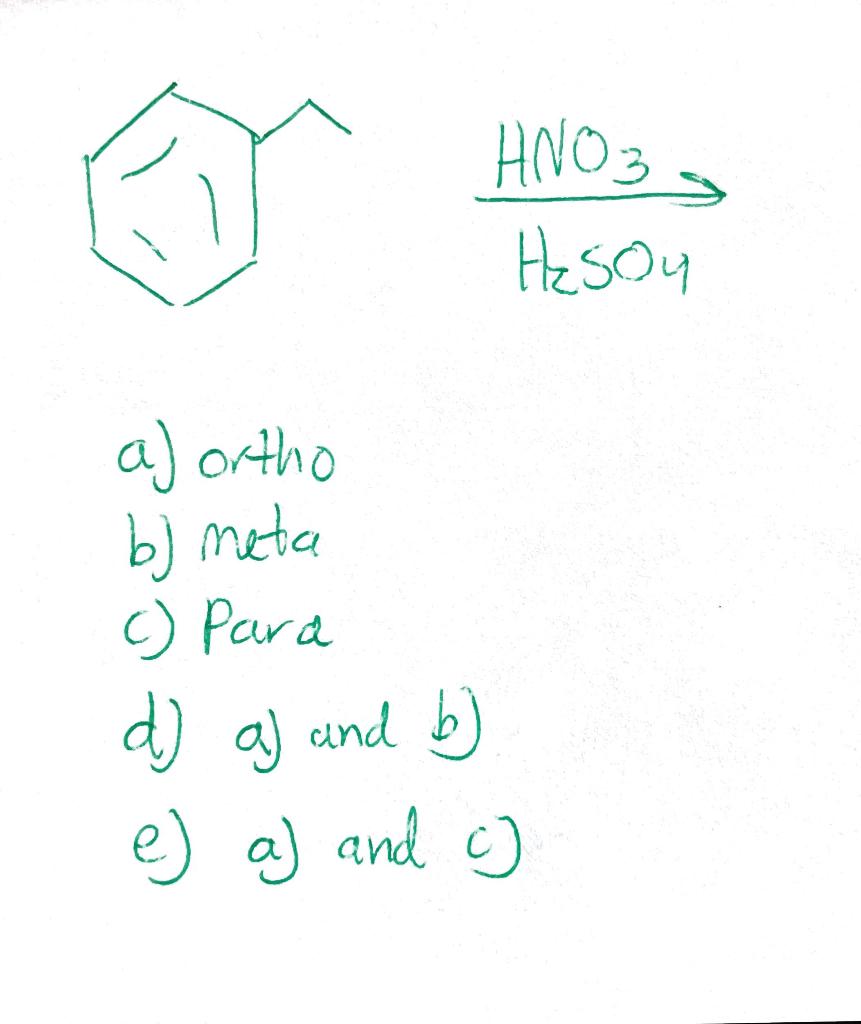 HNO3
H2SO4
a) ortho
b) meta
c) Para
d) a) and b)
e) a) and c)